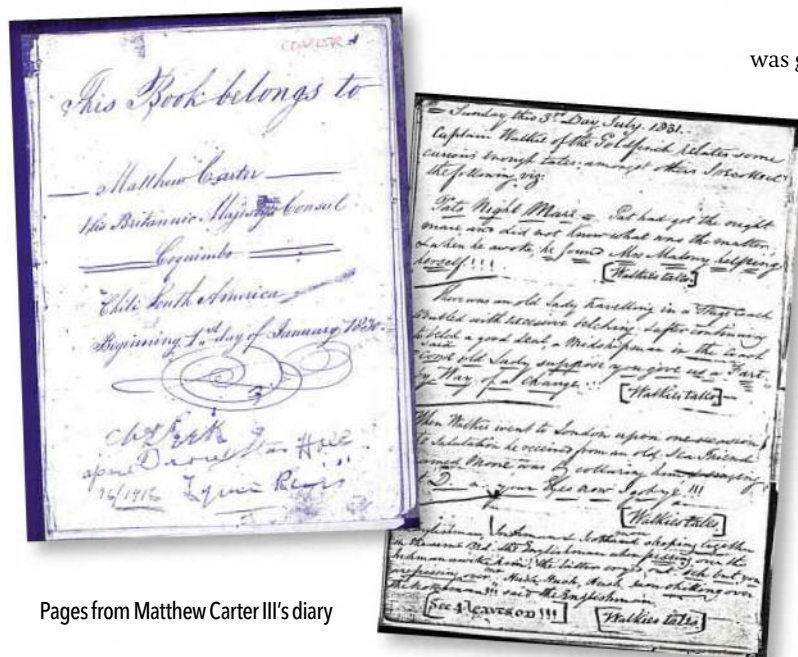 COVER
This Book belongs to
Matthew Carter
His Britannic Majestys Consul
Coquimbo
Chili South America
Beginning 1st day of January 1830.
16/1916
was g
Sunday this 3rd Day July. 1831.
Captain Walker of the Goldfinch relates some
curious enough tales: amongst others I recollect
the following viz:
Pats Night Mare = Pat had got the night
mare and did not know what was the matter,
when he awoke, he found Mrs Malony helping
herself!!!
[Walkers tales]
There was an old Lady travelling in a Stage Coach
troubled with excessive belching, & after continuing
to belch a good deal, a Midshipman in the Coach
said
Good old Lady suppose you give us a Fart
by Way of a Change!!
[Walkers tales]
When Walker went to London upon one occasion
salutation he received from an old Sea Friend
named Moone was by collaring him
[Walkers tales]
Englishman, Irishman and sleeping together
in the same Bed, the Englishman when pissing over the
the latter but you
pissing over Hush, Hush, Hush over
the said the Englishman
[See 4 leaves on!!!]
[Walkers tales]
Pages from Matthew Carter III's diary